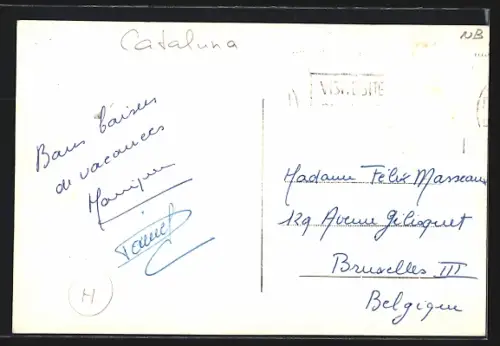 Cataluna
NB
VISITE SITE
Bons baisers
de vacances
Monique
Madame Félix Masseaux
129 Avenue Gilisquet
Bruxelles III
Belgique
M